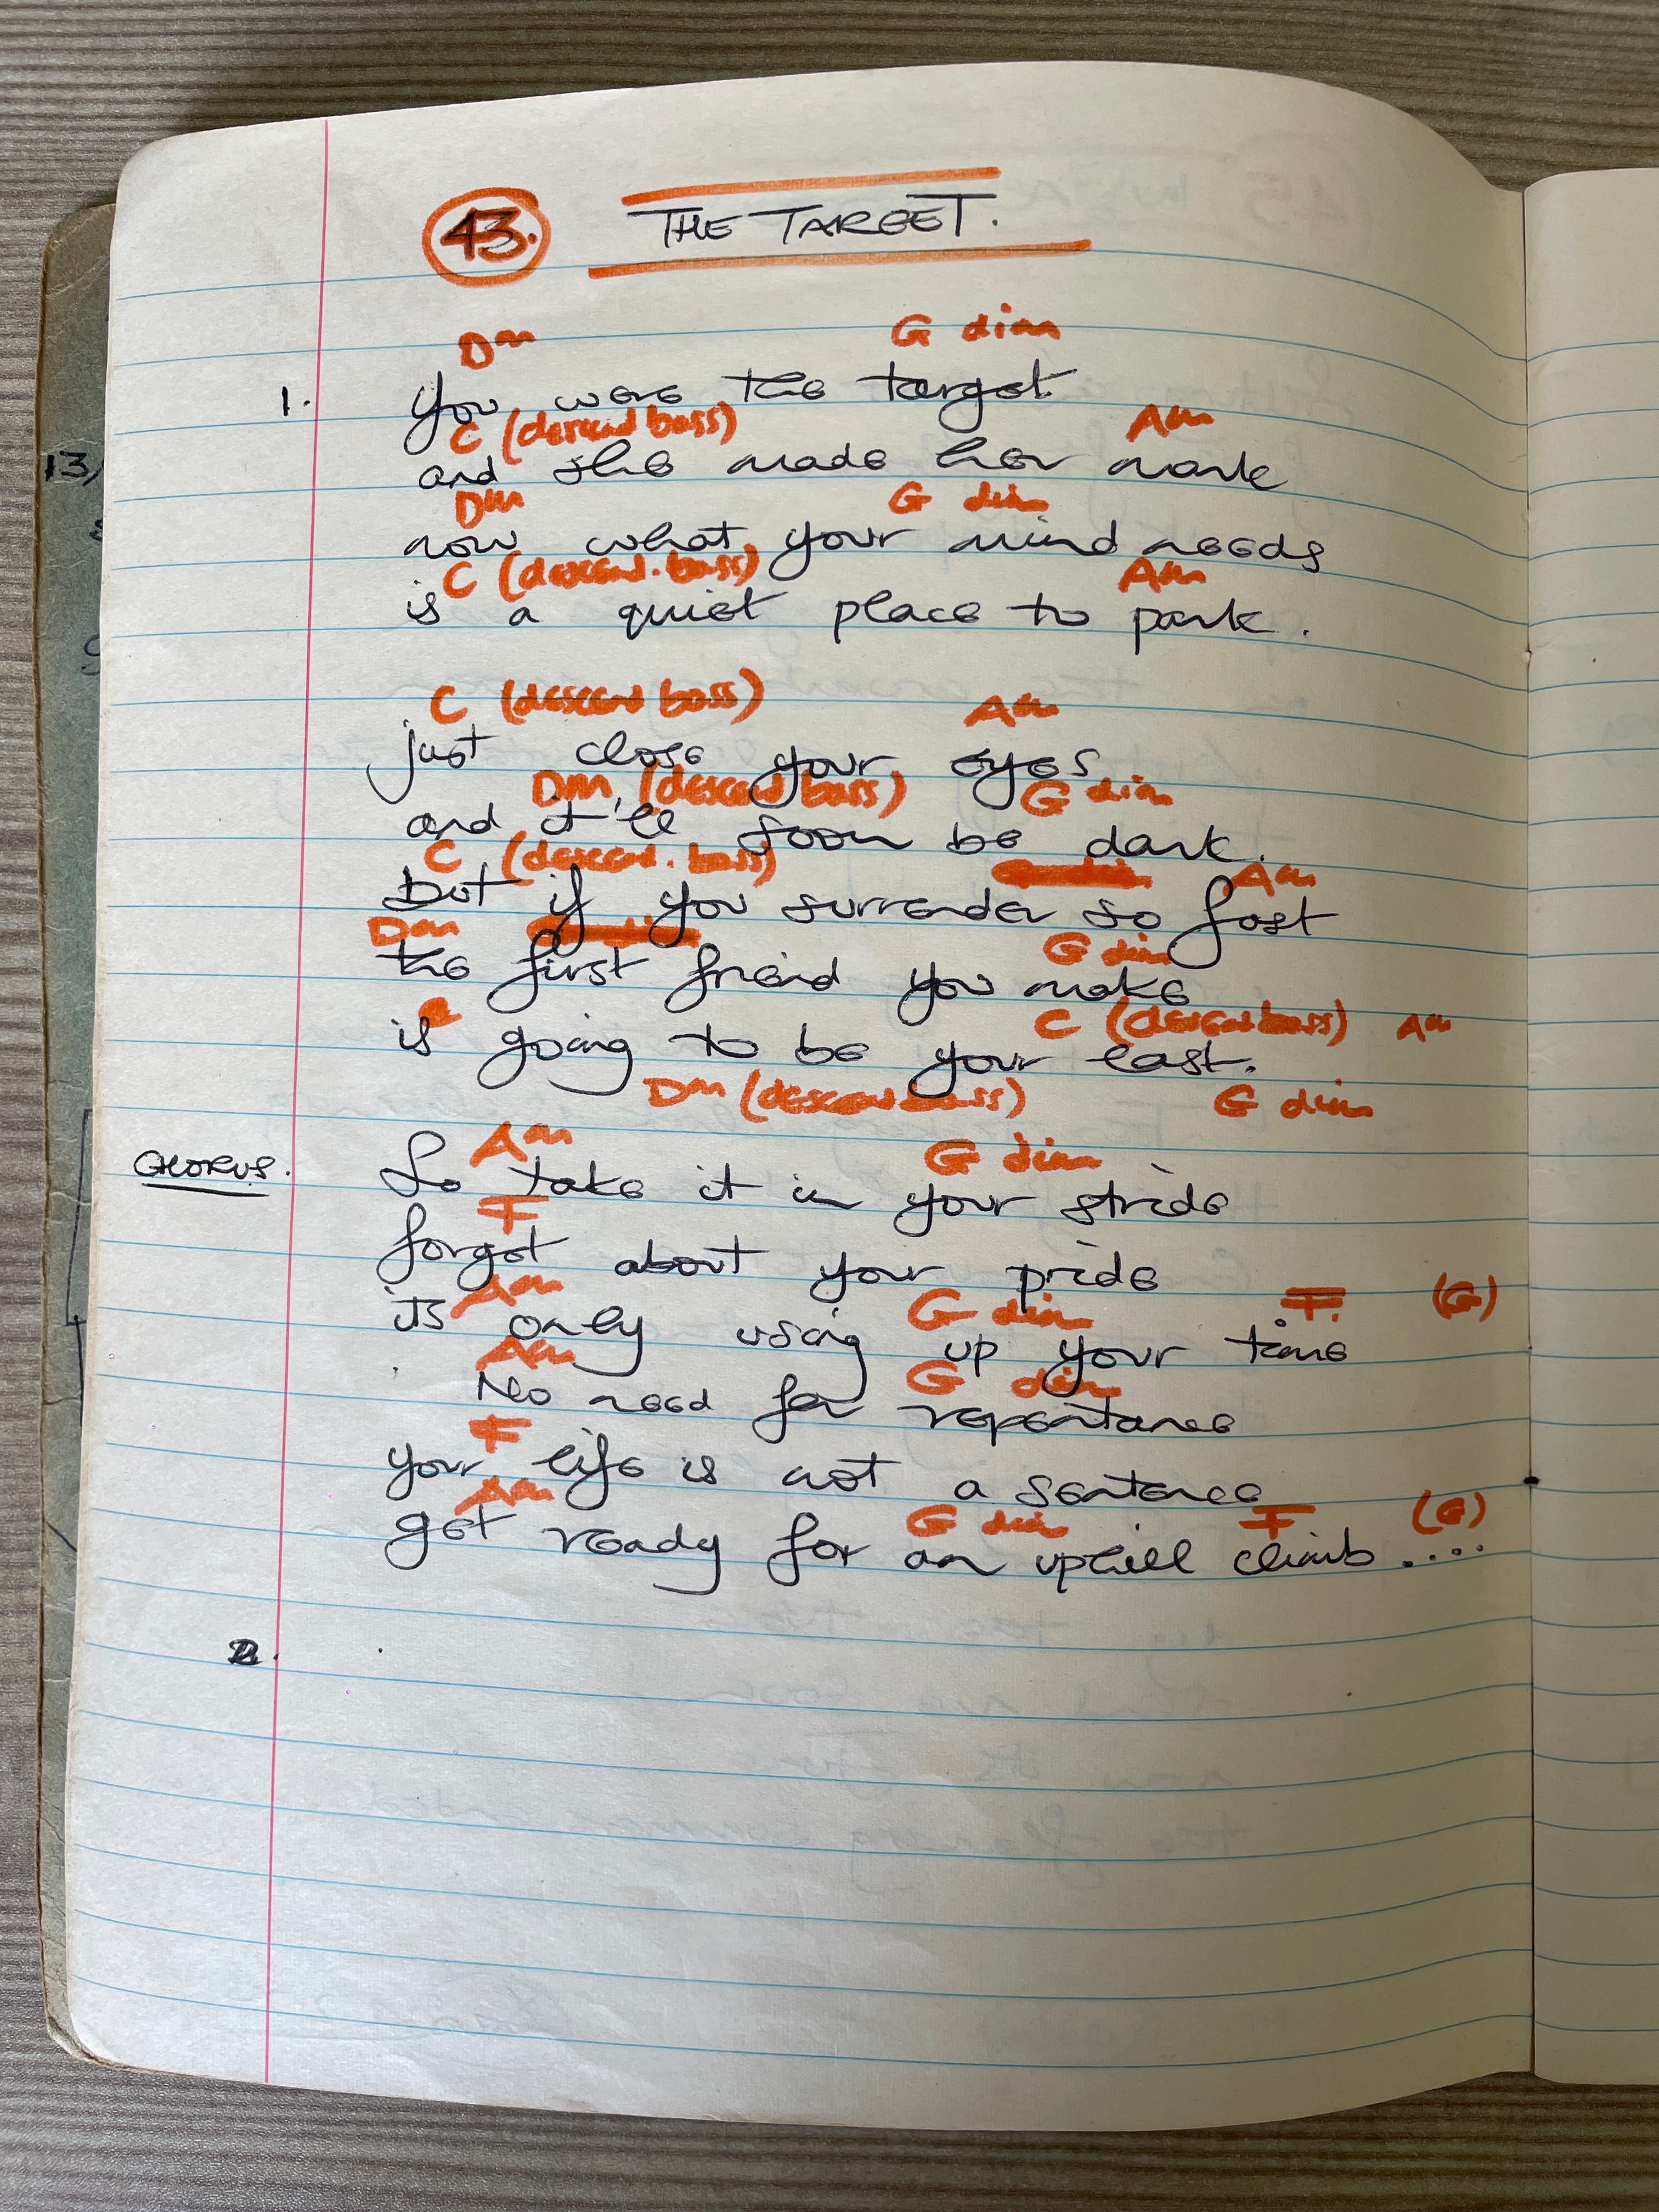 43. THE TARGET.
Dm G dim
1. You were the target
C (descend bass) Am
and she made her mark
Dm G dim
now what your mind needs
C (descend. bass) Am
is a quiet place to park.
C (descend bass) Am
just close your eyes
Dm (descend bass) G dim
and it'll soon be dark.
C (descend. bass) Am
But if you surrender so fast
Dm G dim
the first friend you make
C (descend bass) Am
is going to be your last.
Dm (descend bass) G dim
Am G dim
CHORUS. So take it in your stride
F
forget about your pride
Am G dim F. (G)
its only using up your time
Am G dim
No need for repentance
F
your life is not a sentence
Am G dim F (G)
get ready for an uphill climb....
2.
13/